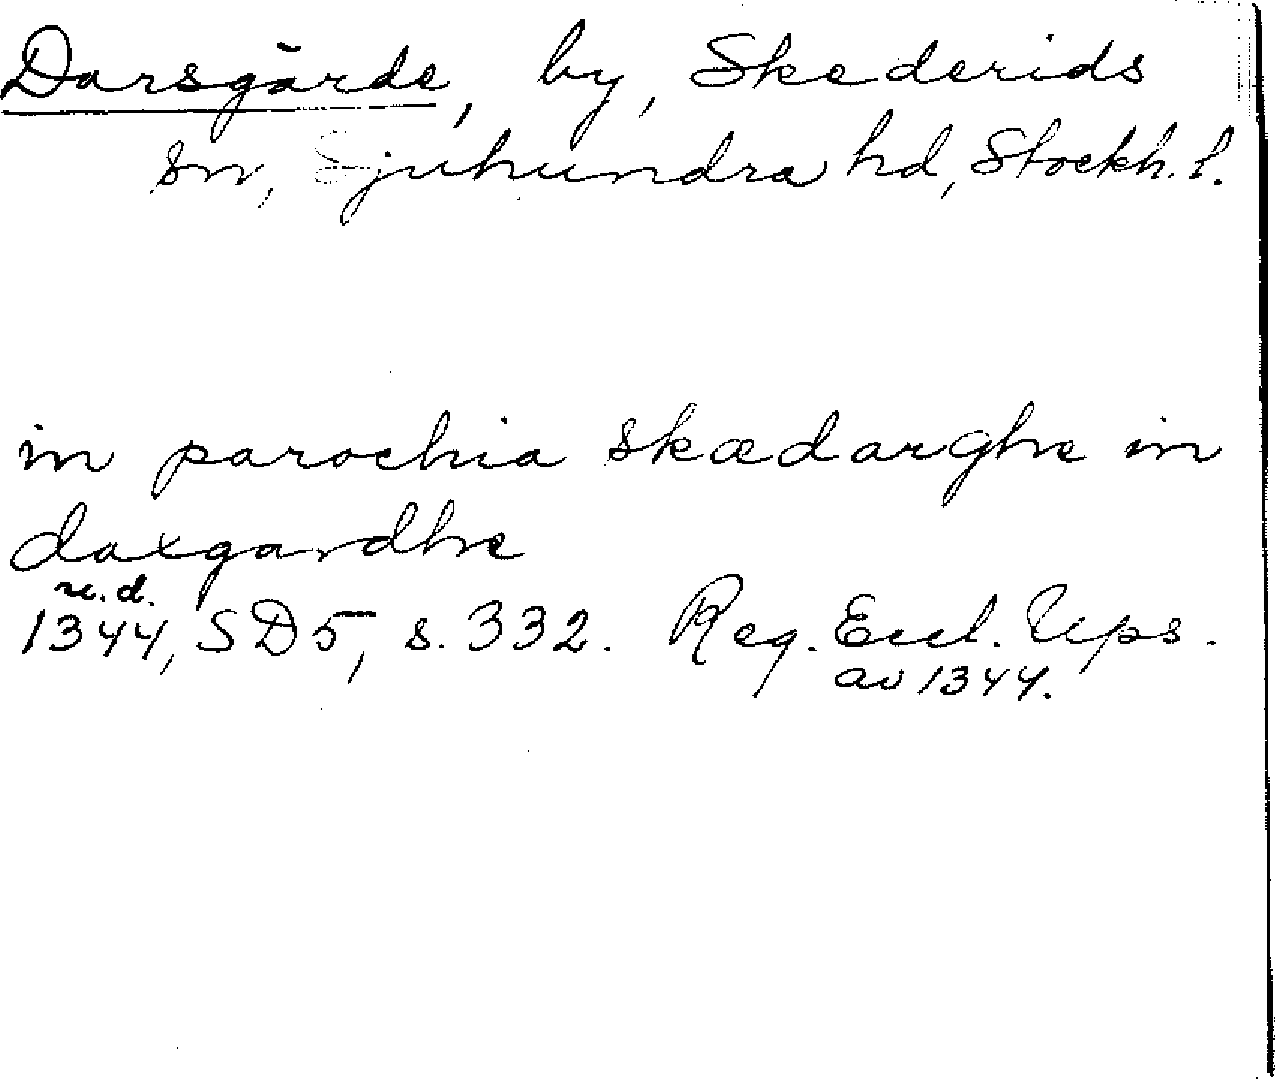 Darsgärde, by, Skederids
sn, Sjuhundra hd, Stockh. l.
in parochia skædarghe in
daxgardhe
u.d.
1344, SD 5, s. 332. Reg. Eccl. Ups.
av 1344.